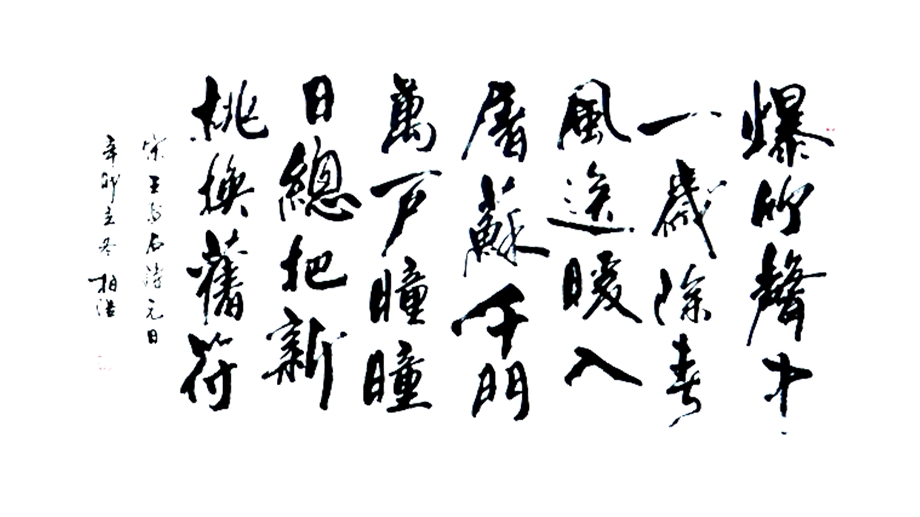 爆竹聲中
一歲除春
風送暖入
屠蘇千門
萬戶曈曈
日總把新
桃換舊符
宋王安石詩元日
辛卯立冬柏浩